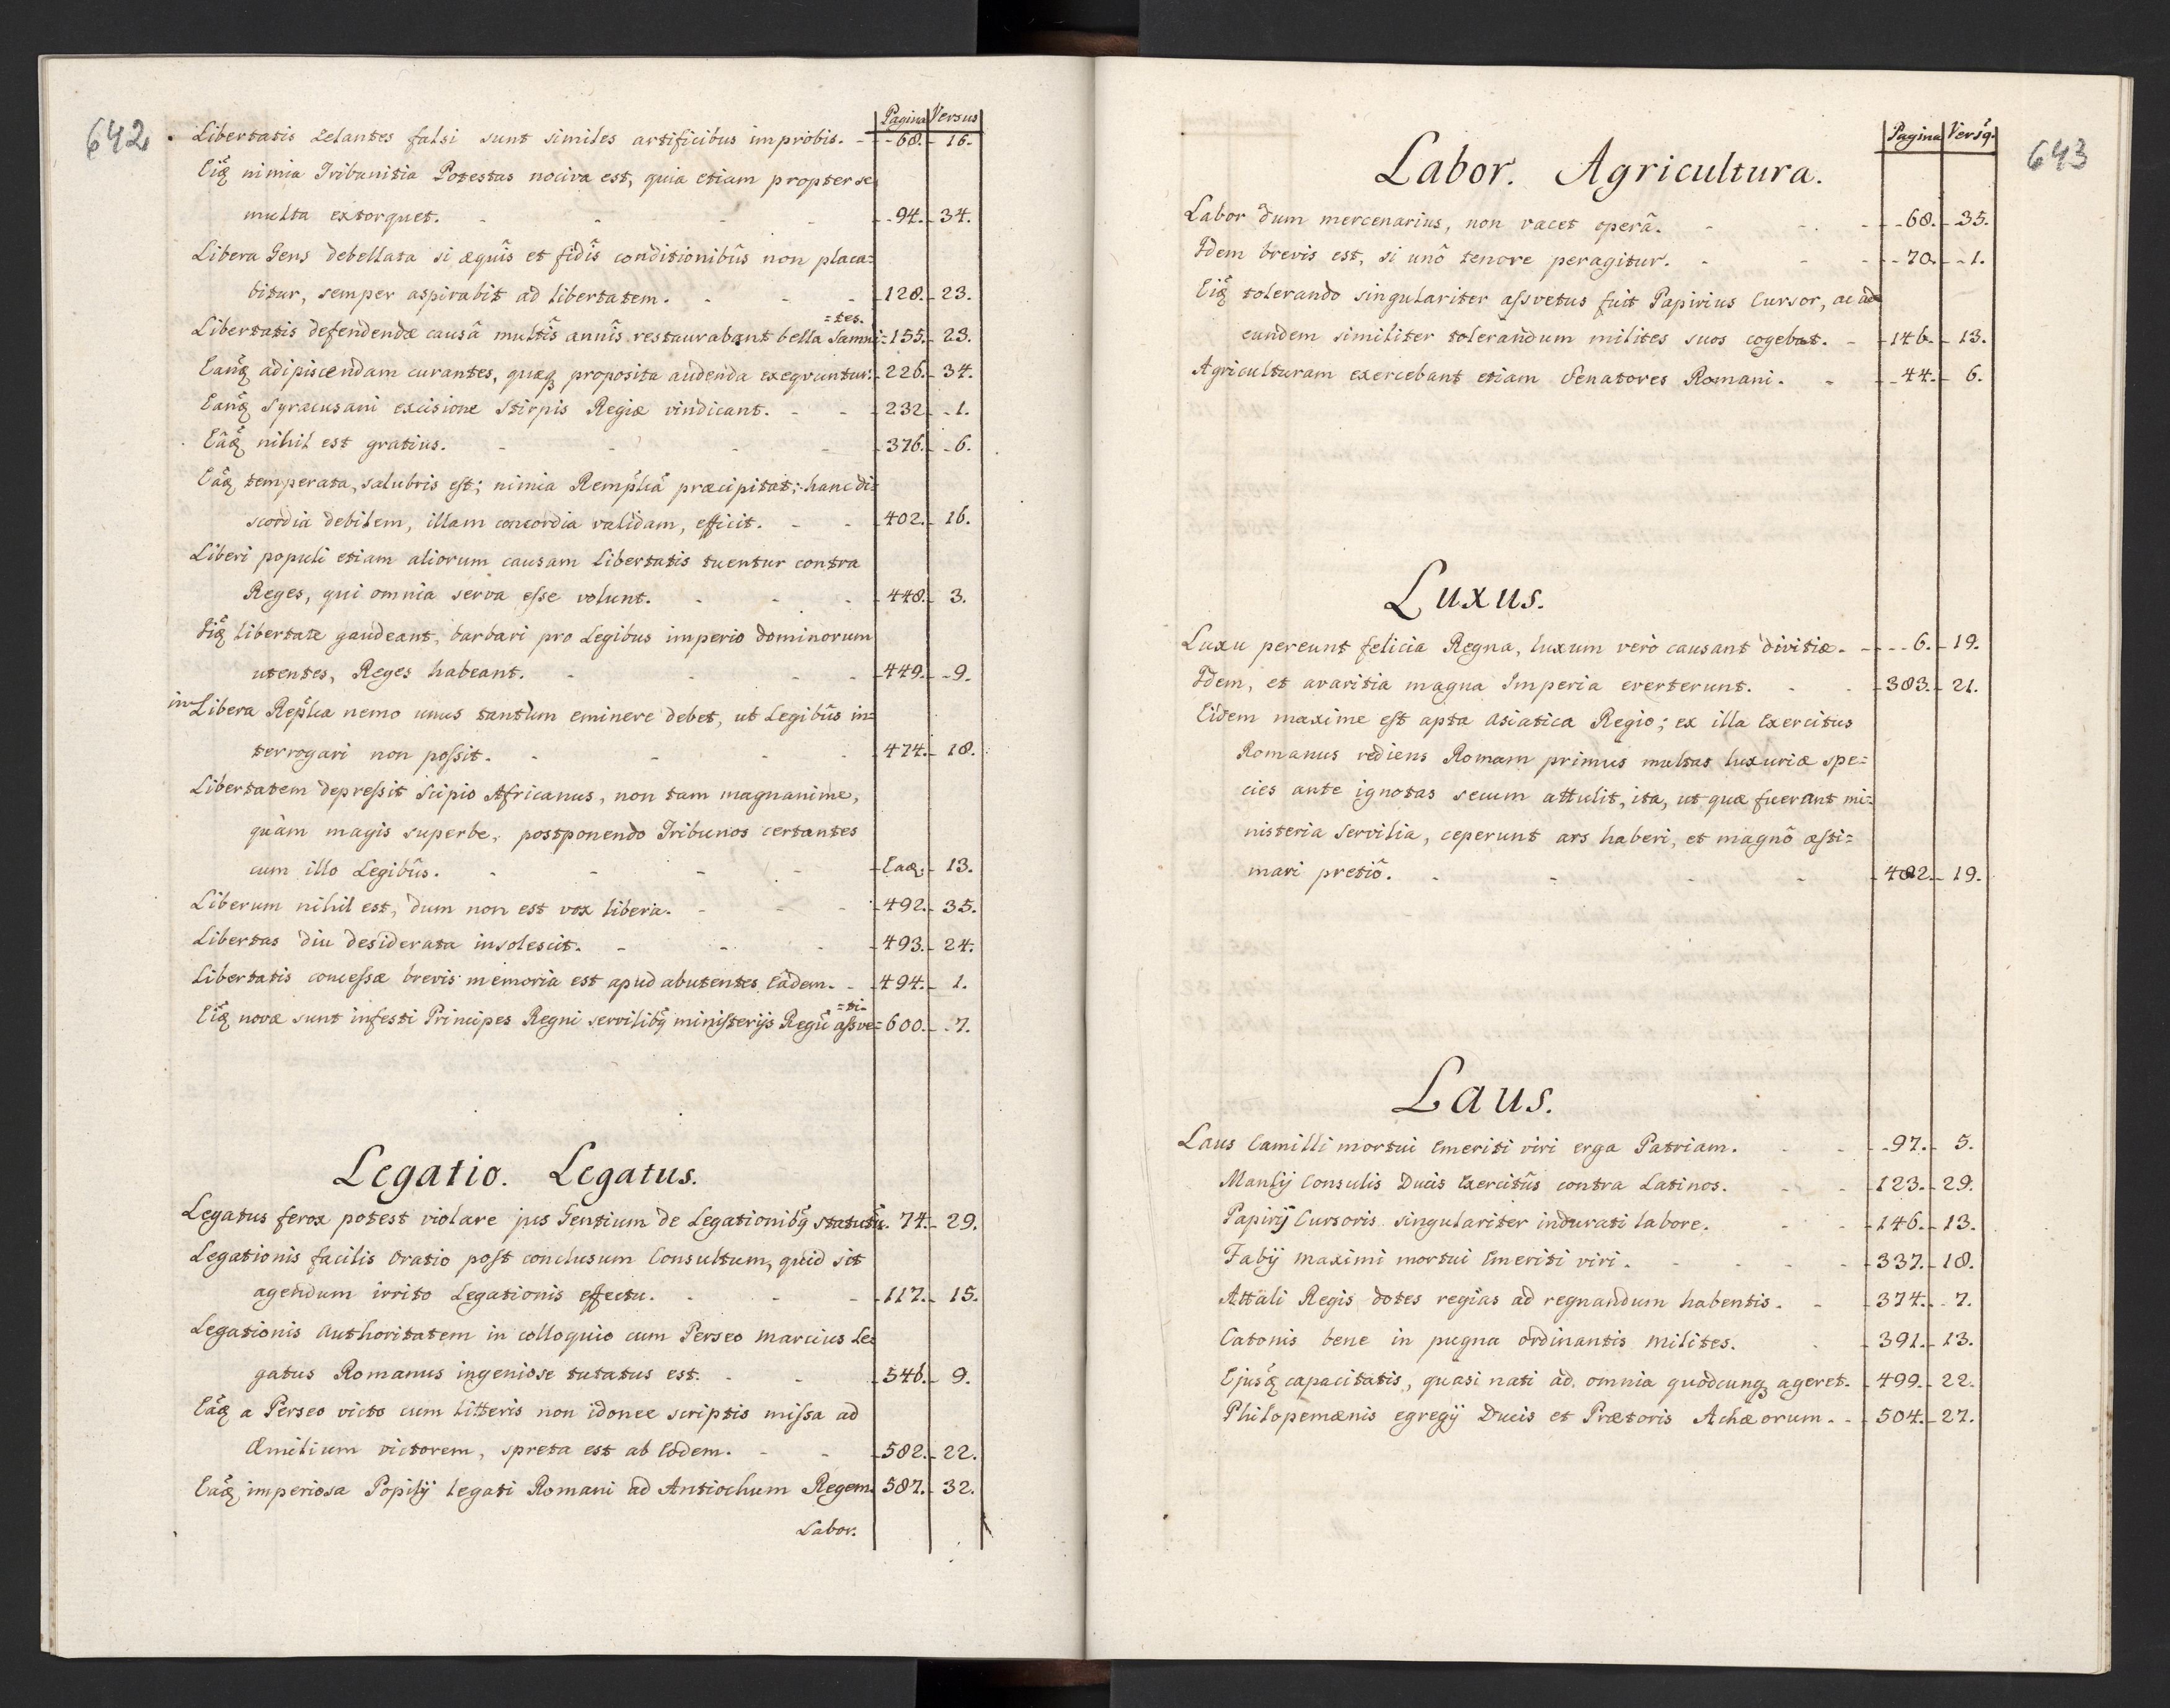 642
Pagina Versus
Libertatis zelantes falsi sunt similes artificibus improbis. - - 68. - 16.
Eiq̃ nimia Tribunitia Potestas nociva est, quia etiam propter se
multa extorquet. - - - - - 94. - 34.
Libera Gens debellata si æquîs et fidîs conditionibûs non placa=
bitur, semper aspirabit ad libertatem. - - - 128. - 23.
=tes.
Libertatis defendendæ causâ multîs annîs restaurabant bella Samni= 155. - 23.
Eanq̃ adipiscendam curantes, quæq proposita audenda exeqvuntur. - 226. - 34.
Eanq̃ Syracusani excisione Stirpis Regiæ vindicant. - - 232. - 1.
Eâq̃ nihil est gratius. - - - - 376. - 6.
Eaq̃ temperata, salubris est; nimia Rempl̃cã præcipitat; hanc di=
scordia debilem, illam concordia validam, efficit. - - 402. - 16.
Liberi populi etiam aliorum causam Libertatis tuentur contra
Reges, qui omnia serva esse volunt. - - - 448. - 3.
Iiq̃ libertate gaudeant, barbari pro Legibus imperio dominorum
utentes, Reges habeant. - - - - 449. - 9.
in Libera Repl̃ca nemo unus tantum eminere debet, ut Legibûs in=
terrogari non possit. - - - - 474. - 18.
Libertatem depressit Scipio Africanus, non tam magnanime,
quàm magis superbe, postponendo Tribunos certantes
cum illo Legibûs. - - - - Eaq. - 13.
Liberum nihil est, dum non est vox libera. - - - 492. - 35.
Libertas diu desiderata insolescit. - - - 493. - 24.
Libertatis concessæ brevis memoria est apud abutentes Eâdem. - - 494. - 1.
=ti-
Eiq̃ novæ sunt infesti Principes Regni servilibq̃ ministerijs Regũ assve= 600. - 7.
Legatio. Legatus.
Legatus ferox potest violare jus Gentium de Legationibq̃ statutũ. 74. - 29.
Legationis facilis Oratio post conclusum Consultum, quid sit
agendum irrito Legationis effectu. - - - 117. - 15.
Legationis Authoritatem in colloquio cum Perseo Marcius Le=
gatus Romanus ingeniose tutatus est. - - - 546. - 9.
Eaq̃ a Perseo victo cum litteris non idonee scriptis missa ad
Æmilium victorem, spreta est ab Eodem. - - - 582. - 22.
Eaq̃ imperiosa Popilij legati Romani ad Antiochum Regem. 587. - 32.
Labor.
643
Pagina Versq̃.
Labor. Agricultura.
Labor dum mercenarius, non vacet operâ. - - - - 68. - 35.
Idem brevis est, si unô tenore peragitur. - - - 70. - 1.
Eiq̃ tolerando singulariter assvetus fuit Papirius Cursor, ac ad
eundem similiter tolerandum milites suos cogebat. - - 146. - 13.
Agriculturam exercebant etiam Senatores Romani. - - 44. - 6.
Luxus.
Luxu pereunt felicia Regna, luxum verò causant divitiæ. - - - 6. - 19.
Idem, et avaritia magna Imperia everterunt. - - 383. - 21.
Eidem maxime est apta Asiatica Regio; ex illa Exercitus
Romanus rediens Romam primus multas luxuriæ spe=
cies ante ignotas secum attulit, ita, ut quæ fuerant mi=
nisteria servilia, ceperunt ars haberi, et magnô æsti=
mari pretiô. - - - - 482. - 19.
Laus.
Laus Camilli mortui Emeriti viri erga Patriam. - - - 97. - 5.
Manlij Consulis Ducis Exercitûs contra Latinos. - - 123. - 29.
Papirij Cursoris singulariter indurati labore. - - 146. - 13.
Fabij Maximi mortui Emeriti viri. - - - - 337. - 18.
Attali Regis dotes regias ad regnandum habentis. - - 374. - 7.
Catonis bene in pugna ordinantis Milites. - - 391. - 13.
Ejusq̃ capacitatis, quasi nati ad omnia quodcunq ageret. - 499. - 22.
Philopemænis egregij Ducis et Prætoris Achæorum. - - 504. - 27.